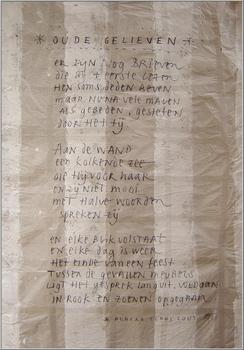 * OUDE GELIEVEN *
ER ZIJN NOG BRIEVEN
DIE BIJ 'T EERSTE LEZEN
HEN SOMS DEDEN BEVEN
MAAR NU NA VELE MALEN
ALS GEBEDEN, GESLETEN
DOOR HET TIJ
AAN DE WAND
EEN KOLKENDE ZEE
DIE HIJ VOOR HAAR
EN ZIJ NIET MOOI
MET HALVE WOORDEN
SPREKEN ZIJ
EN ELKE BLIK VOLSTAAT
EN ELKE DAG IS WEER
HET EINDE VAN EEN FEEST
TUSSEN DE GEVALLEN MEUBELS
LIGT HET GESPREK LANGUIT, VOLDAAN
IN ROOK EN ZOENEN OPGEGAAN